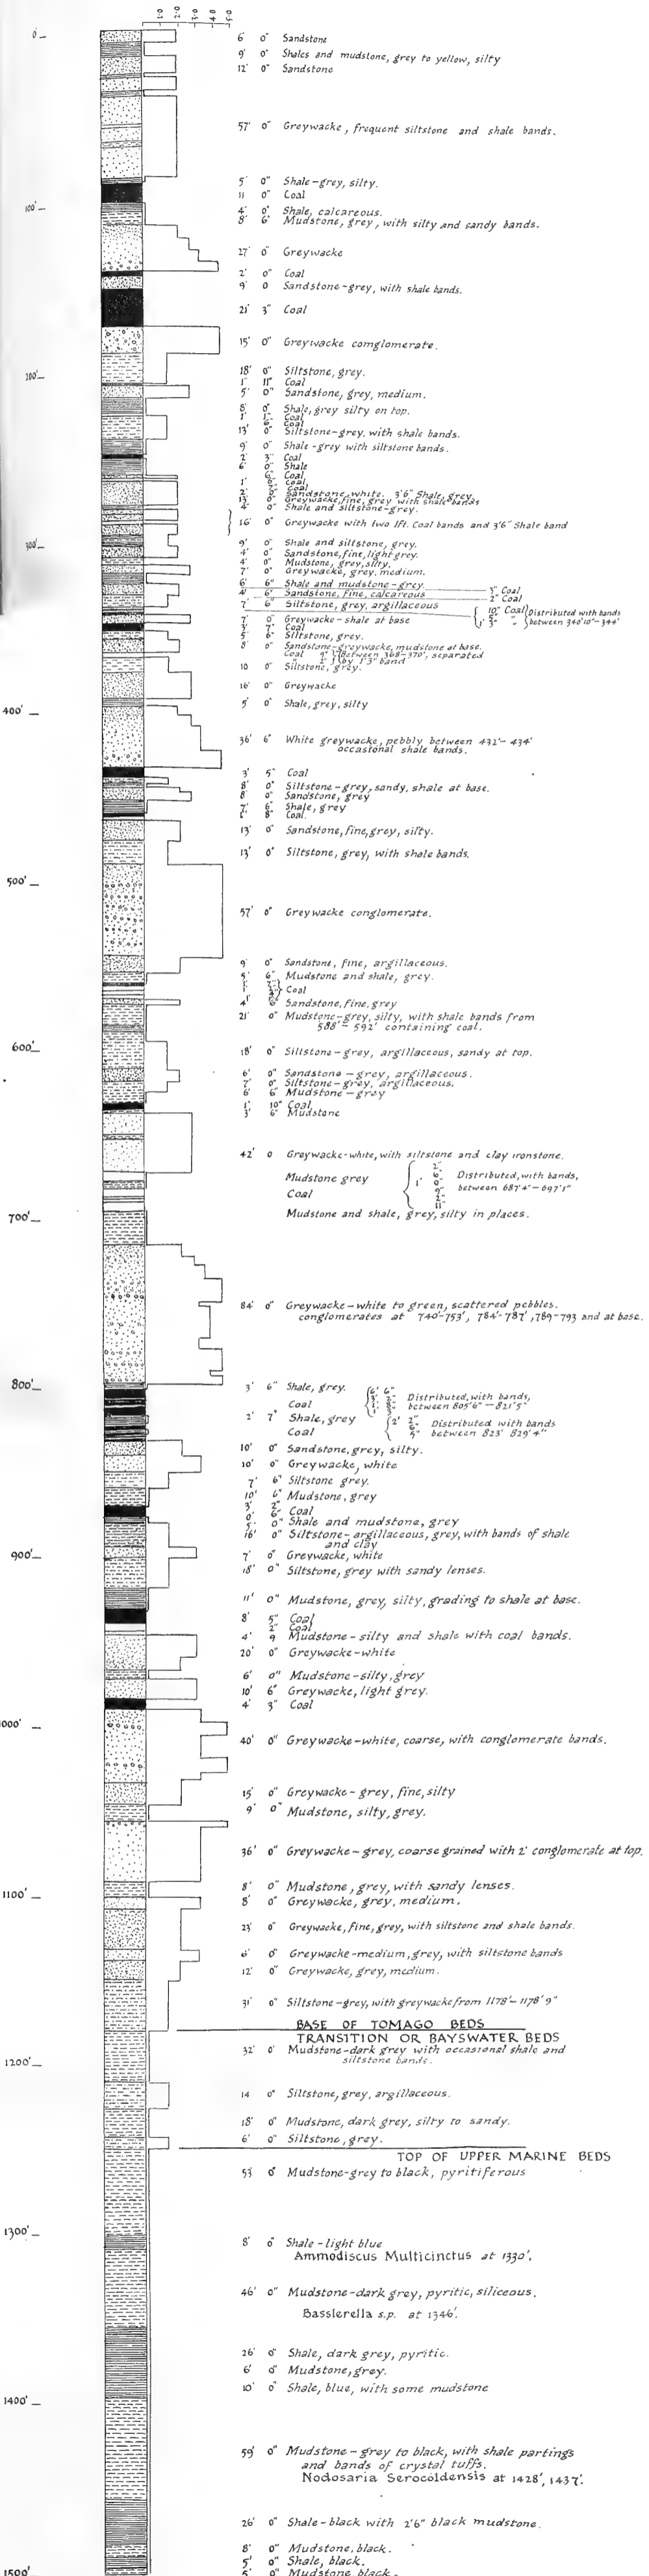 1·0 2·0 3·0 4·0 5·0
0'
6' 0" Sandstone
9' 0" Shales and mudstone, grey to yellow, silty
12' 0" Sandstone
57' 0" Greywacke, frequent siltstone and shale bands.
5' 0" Shale-grey, silty.
11 0" Coal
100'
4' 0" Shale, calcareous.
8' 6" Mudstone, grey, with silty and sandy bands.
27' 0" Greywacke
2' 0" Coal
9' 0 Sandstone-grey, with shale bands.
21' 3" Coal
15' 0" Greywacke comglomerate.
200'
18' 0" Siltstone, grey.
1' 11" Coal
5' 0" Sandstone, grey, medium.
8' 0" Shale, grey silty on top.
Coal
Coal
13' 0" Siltstone-grey, with shale bands.
9' 0" Shale-grey with siltstone bands.
2' 3" Coal
6' 0" Shale
6" Coal
Coal
2' Sandstone, white. 3'6" Shale, grey
13' 0" Greywacke, fine, grey with shale bands
4' 0" Shale and siltstone-grey.
16' 0" Greywacke with two 1ft. Coal bands and 3'6" Shale band
300'
9' 0" Shale and siltstone, grey.
4' 0" Sandstone, fine, light grey.
4' 0" Mudstone, grey, silty.
7' 0" Greywacke, grey, medium.
6' 6" Shale and mudstone-grey. 3" Coal
4' 6" Sandstone, fine, calcareous 2" Coal
7' 6" Siltstone, grey, argillaceous 10" Coal Distributed with bands
between 340'10"-344'
7' 0" Greywacke-shale at base
3' 7" Coal
5' 6" Siltstone, grey.
8' 0" Sandstone-greywacke, mudstone at base.
Coal 9" between 368-370', separated
by 1'3" band
10 0" Siltstone, grey.
16' 0" Greywacke
5' 0" Shale, grey, silty
400'
36' 6" White greywacke, pebbly between 432'-434'
occasional shale bands.
3' 5" Coal
8' 0" Siltstone-grey, sandy, shale at base.
8' 0" Sandstone, grey
7' 6" Shale, grey
1' 8" Coal.
13' 0" Sandstone, fine, grey, silty.
13' 0" Siltstone, grey, with shale bands.
500'
57' 0" Greywacke conglomerate.
9' 0" Sandstone, fine, argillaceous.
5' 6" Mudstone and shale, grey.
Coal
4' 6" Sandstone, fine, grey
21' 0" Mudstone-grey, silty, with shale bands from
588'-592' containing coal.
600'
18' 0" Siltstone-grey, argillaceous, sandy at top.
6' 0" Sandstone-grey, argillaceous.
7' 0" Siltstone-grey, argillaceous.
6' 6" Mudstone-grey
1' 10" Coal
3' 6" Mudstone
42' 0 Greywacke-white, with siltstone and clay ironstone.
Mudstone grey
Coal
Distributed, with bands,
between 687'4"-697'1"
700'
Mudstone and shale, grey, silty in places.
84' 0" Greywacke-white to green, scattered pebbles.
conglomerates at 740'-753', 784'-787', 789-793 and at base.
800'
3' 6" Shale, grey.
Coal
Distributed, with bands,
between 805'6"-821'5"
2' 7" Shale, grey
Coal
Distributed with bands
between 823' 829'4"
10' 0" Sandstone, grey, silty.
10' 0" Greywacke, white
7' 6" Siltstone grey.
10' 6" Mudstone, grey
3' 2"
0' 6" Coal
5' 0" Shale and mudstone, grey
16' 0" Siltstone-argillaceous, grey, with bands of shale
and clay
900'
7' 0" Greywacke, white
18' 0" Siltstone, grey with sandy lenses.
11' 0" Mudstone, grey, silty, grading to shale at base.
8' 5" Coal
2" Coal
4' 9 Mudstone-silty and shale with coal bands.
20' 0" Greywacke-white
6' 0" Mudstone-silty, grey
10' 6" Greywacke, light grey.
4' 3" Coal
1000'
40' 0" Greywacke-white, coarse, with conglomerate bands.
15' 0" Greywacke-grey, fine, silty
9' 0" Mudstone, silty, grey.
36' 0" Greywacke-grey, coarse grained with 2' conglomerate at top.
1100'
8' 0" Mudstone, grey, with sandy lenses.
8' 0" Greywacke, grey, medium.
23' 0" Greywacke, fine, grey, with siltstone and shale bands.
6' 0" Greywacke-medium, grey, with siltstone bands
12' 0" Greywacke, grey, medium.
31' 0" Siltstone-grey, with greywacke from 1178'-1178'9"
BASE OF TOMAGO BEDS
TRANSITION OR BAYSWATER BEDS
1200'
32' 0' Mudstone-dark grey with occasional shale and
siltstone bands.
14 0" Siltstone, grey, argillaceous.
18' 0" Mudstone, dark grey, silty to sandy.
6' 0" Siltstone, grey.
TOP OF UPPER MARINE BEDS
53' 0" Mudstone-grey to black, pyritiferous
1300'
8' 0" Shale-light blue
Ammodiscus Multicinctus at 1330'.
46' 0" Mudstone-dark grey, pyritic, siliceous.
Basslerella s.p. at 1346'.
26' 0" Shale, dark grey, pyritic.
6' 0" Mudstone, grey.
10' 0" Shale, blue, with some mudstone
1400'
59' 0" Mudstone-grey to black, with shale partings
and bands of crystal tuffs.
Nodosaria Serocoldensis at 1428', 1437'.
26' 0" Shale-black with 2'6" black mudstone.
8' 0" Mudstone, black.
5' 0" Shale, black.
1500'
Mudstone black.